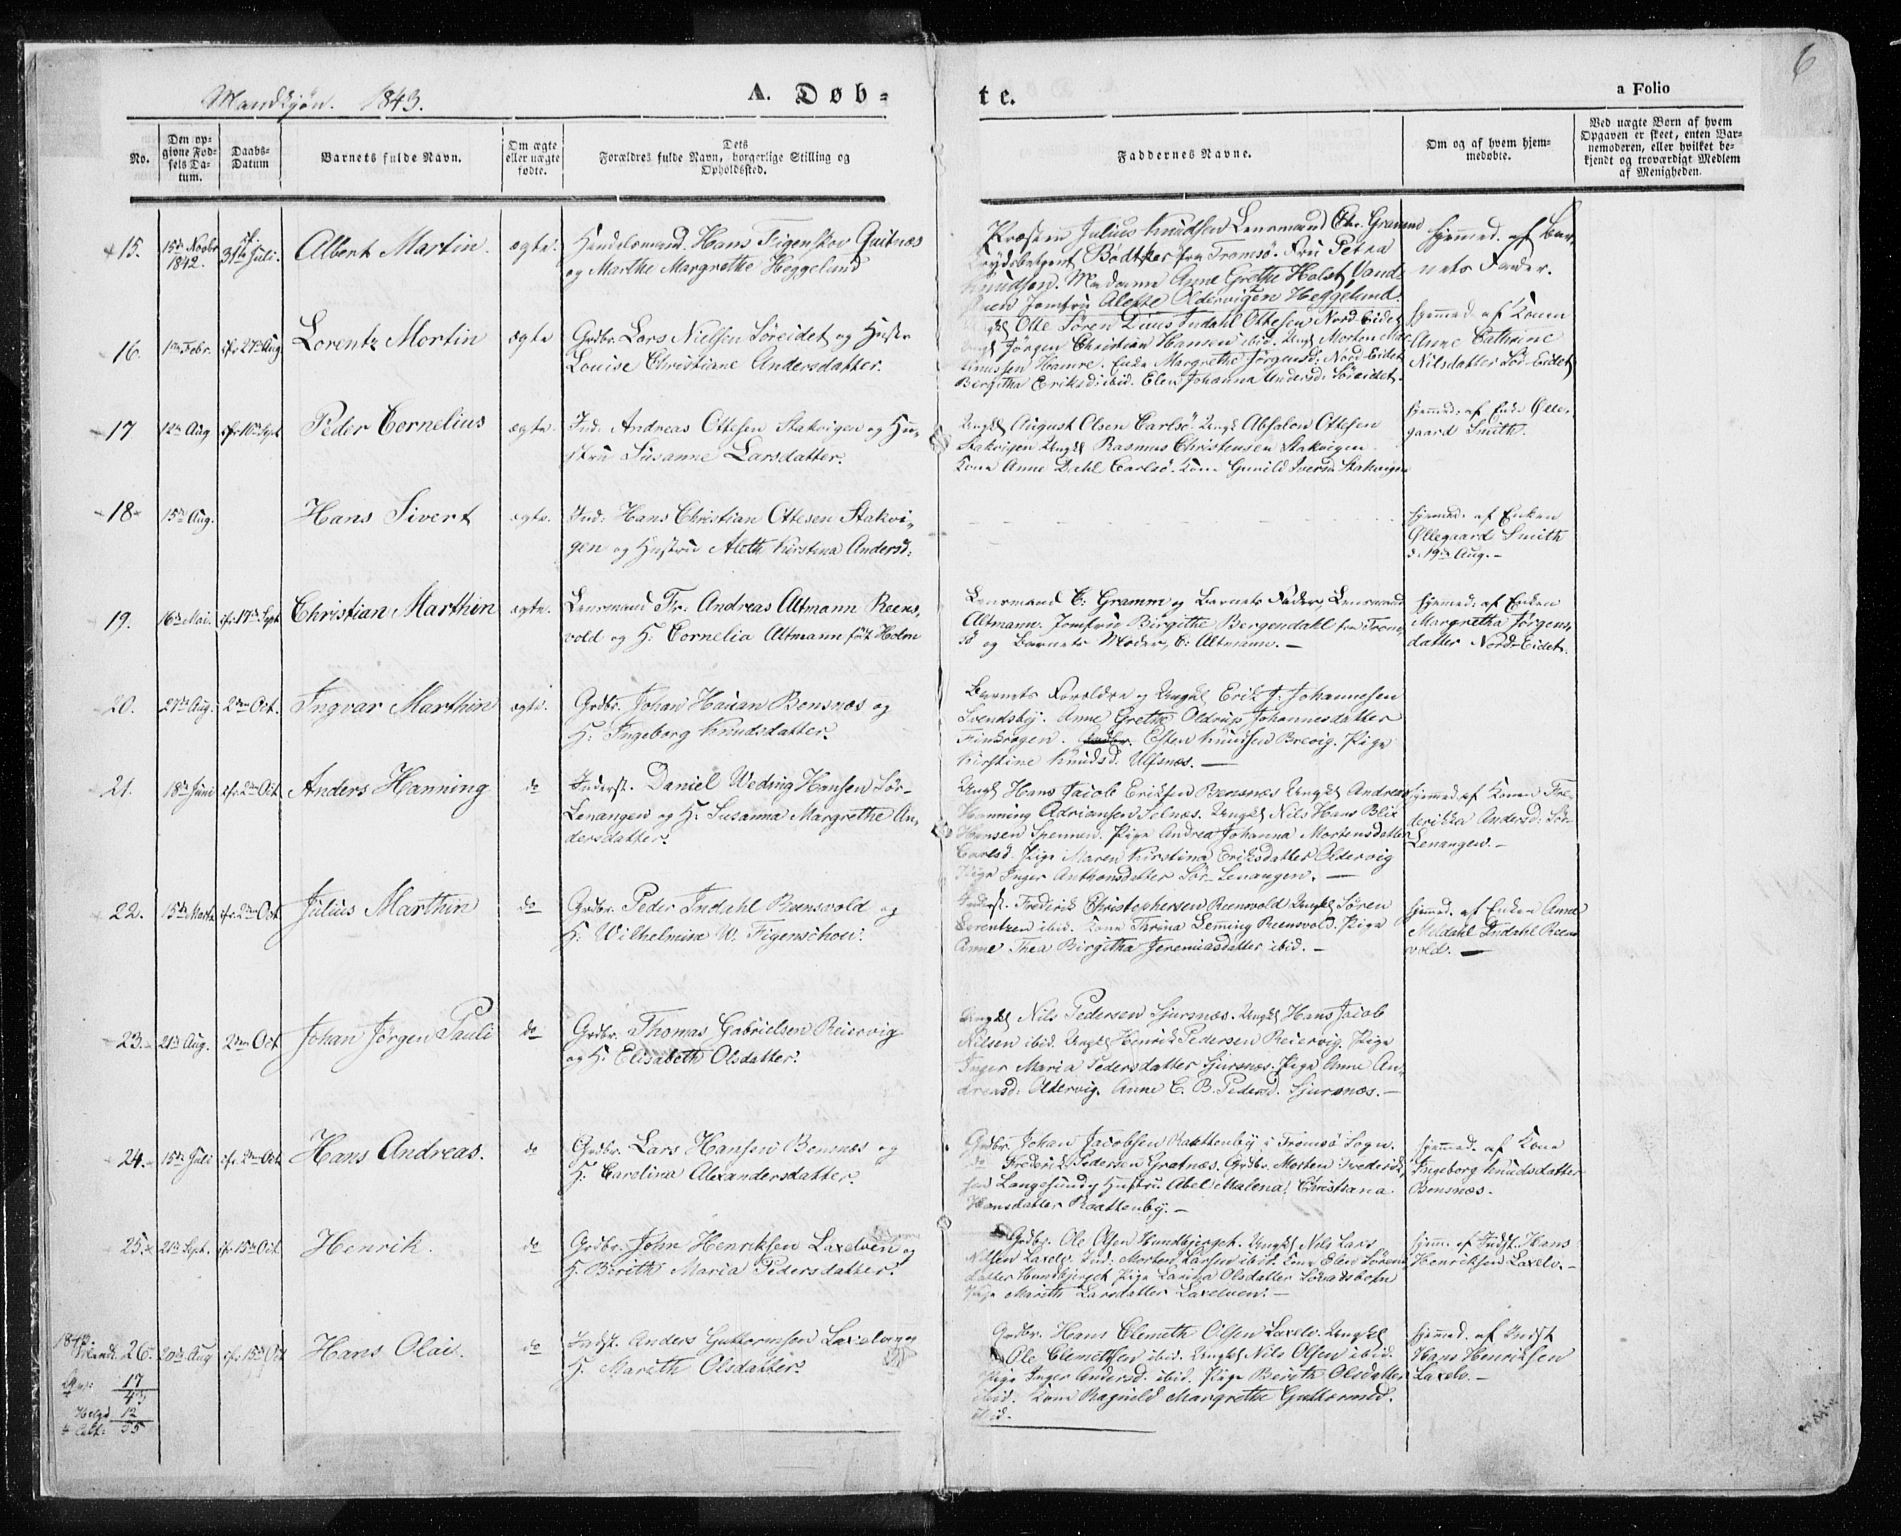 6
Mandkjøn. 1843. A. Døb- te. a Folio
No.
Den op-
givne Fød-
sels Da-
tum.
Daabs-
Datum
Barnets fulde Navn.
Om ægte
eller uægte
fødte.
Dets
Forældres fulde Navn, borgerlige Stilling og
Opholdssted.
Faddernes Navne.
Om og af hvem hjem-
medøbte.
Ved uægte Børn af hvem
Opgaven er skeet, enten Bar-
nemoderen, eller hvilket be-
kjendt og troværdigt Medlem
af Menigheden.
15. 15de Novbr
1842. 31te Juli. Albert Martin. ægte. Handelsmand Hans Figenskov Quitnæs
og Marthe Margrethe Heggelund
Præsten Julius Knudsen Lensmand Chr. Gramm
Bødtker fra Tromsø. Fru Petra
Knudsen. Madame Anne Grethe Holst Vand-
Jomfru Alette Oldervigen Heggelund.
hjemmed. af Bar-
nets Fader.
16. 1ste Febr. cfr 27de Aug. Lorentz Mortin ægte Grdbr. Lars Nielsen Søreidet og Hustru
Louise Christiane Andersdatter.
Otte Søren Dius Indahl Ottesen Nord-Eidet
Ungk. Jørgen Christian Hansen ibid. Ungk. Morten
Knudsen Hamre. Enke Margrethe Jørgensd. Nord-Eidet
Birgitha Eriksd. ibid. Elen Johanna Andersd. Søreidet.
hjemmed. af Konen
Anne Cathrine
Nilsdatter Sør-Eidet
17 12te Aug cfr 10de Sept Peder Cornelius ægte. Ind. Andreas Ottesen Stakvigen og Hu-
stru Susanne Larsdatter.
Ungk. August Olsen Carlsø. Ungk. Absalon Ottesen
Stakvigen Ungk. Rasmus Christensen Stakvigen.
Kone Anne Dahl Carlsø. Kone Gunild Iversd. Stakvigen
hjemmed. af Enke Olle-
gaard Smith.
18 15de Aug. Hans Sivert ægte. Ind: Hans Christian Ottesen Stakvi-
gen og Hustru Aleth Kirstina Andersd:
hjemmed. af Enken
Øllegaard Smith
d. 19de Aug. -
19. 16de Mai. cfr 17de Sept Christian Marthin ægte. Lensmand Fr. Andreas Altmann Reens-
vold og H. Cornelia Altmann født Holm
Lensmand C: Gramm og Barnets Fader, Lensmand
Altmann. Jomfru Birgithe Bergendahl fra Trom-
sø og Barnets Moder, C: Altmann. -
hjemmed. af Enken
Margretha Jørgens-
datter Nord-Eidet.
20. 27de Aug. 2den Oct. Ingvar Marthin ægte. Grdbr. Johan Hauan Bensnæs og
H. Ingeborg Knudsdatter.
Barnets Forældre og Ungk. Erik J. Johannesen
Svendsby. Anne Grethe Oldrup Johannesdatter
Finkrogen. Esten Knudsen Brevig. Pige
Kirstine Knudsd. Ulfsnæs. -
21. 18de Juni cfr 2den Oct. Anders Hanning do Inderst. Daniel Weding Hansen Sør-
Lenangen og H. Susanna Margrethe An-
dersdatter.
Ungk. Hans Jacob Eriksen Bensnæs Ungk. Andreas
Hanning Adriansen Selnæs. Ungk. Nils Hans Blix
Hansen Spennen. Pige Andrea Johanna Mortensdatter
Carlsø. Pige Maren Kirstina Eriksdatter Oldervig
Pige Inger Anthonsdatter Sør-Lenangen. -
hjemmed. af Konen Fre-
derikka Andersd. Sør-
Lenangen. -
22. 15de Marts cfr 2den Oct Julius Marthin do Grdbr. Peder Indahl Reensvold og
H. Wilhelmina W. Figenschou.
Inderst. Frederik Christophersen Reensvold Ungk. Søren
Lorentzen ibid. Kone Thrina Leming Reensvold. Pige
Anne Thea Birgitha Jeremiasdatter ibid. -
hjemmed. af Enken Anne
Meldahl Indahl Reens-
vold. -
23. 21de Aug. 2den Oct Johan Jørgen Pauli do Grdbr. Thomas Gabrielsen Reiervig
og H. Elisabeth Olsdatter.
Ungk. Nils Pedersen Sjursnæs. Ungk. Hans Jacob
Nilsen ibid. Ungk. Henrik Pedersen Reiervig. Pige
Inger Maria Pedersdatter Sjursnæs. Pige Anne An-
dreasd: Oldervig. Anne C. B. Pedersd. Sjursnæs. -
24. 15de Juli cfr 2den Oct Hans Andreas. do Grdbr. Lars Hansen Bensnæs og
H. Carolina Alexandersdatter.
Grdbr. Johan Jacobsen Raattenby i Tromsø Sogn.
do Frederik Pedersen Gratnæs. Grdbr. Morten Frederik-
sen Langesund og Hustru Abel Malena. Christiana
Hansdatter Raattenby. -
hjemmed. af Kone
Ingeborg Knudsdatter
Bensnæs.
25. 21de Sept. cfr 15de Oct. Henrik. do Grdbr. John Henriksen Laxelven og
H. Berith Maria Pedersdatter.
Grdbr. Ole Olsen Hundbjerget. Ungk. Nils Lars
Nilsen Laxelv. Ind. Morten Larsen ibid. Kone Elen Sørens-
datter Hundbjerget Pige Olsdatter
Pige Marith Larsdatter Laxelven. -
hjemm. af Indst. Hans
Henriksen Laxelv. -
1843.
Mandk. 26. 20de Aug cfr 15de Oct Hans Olai. do Indst. Anders Guttormsen Laxelven og
H. Marith Olsdatter.
Grdbr. Hans Clemeth Olsen Laxelv. Ungk.
Ole Clemetsen ibid. Ungk. Nils Olsen ibid.
Pige Inger Andersd. ibid. Pige Berith Olsdatter
ibid. Kone Ragnild Margrethe Guttormsd.
ibid.
hjemmed. af Indst
Hans Henriksen
Laxelv. -
17
43
Helgø 12
55